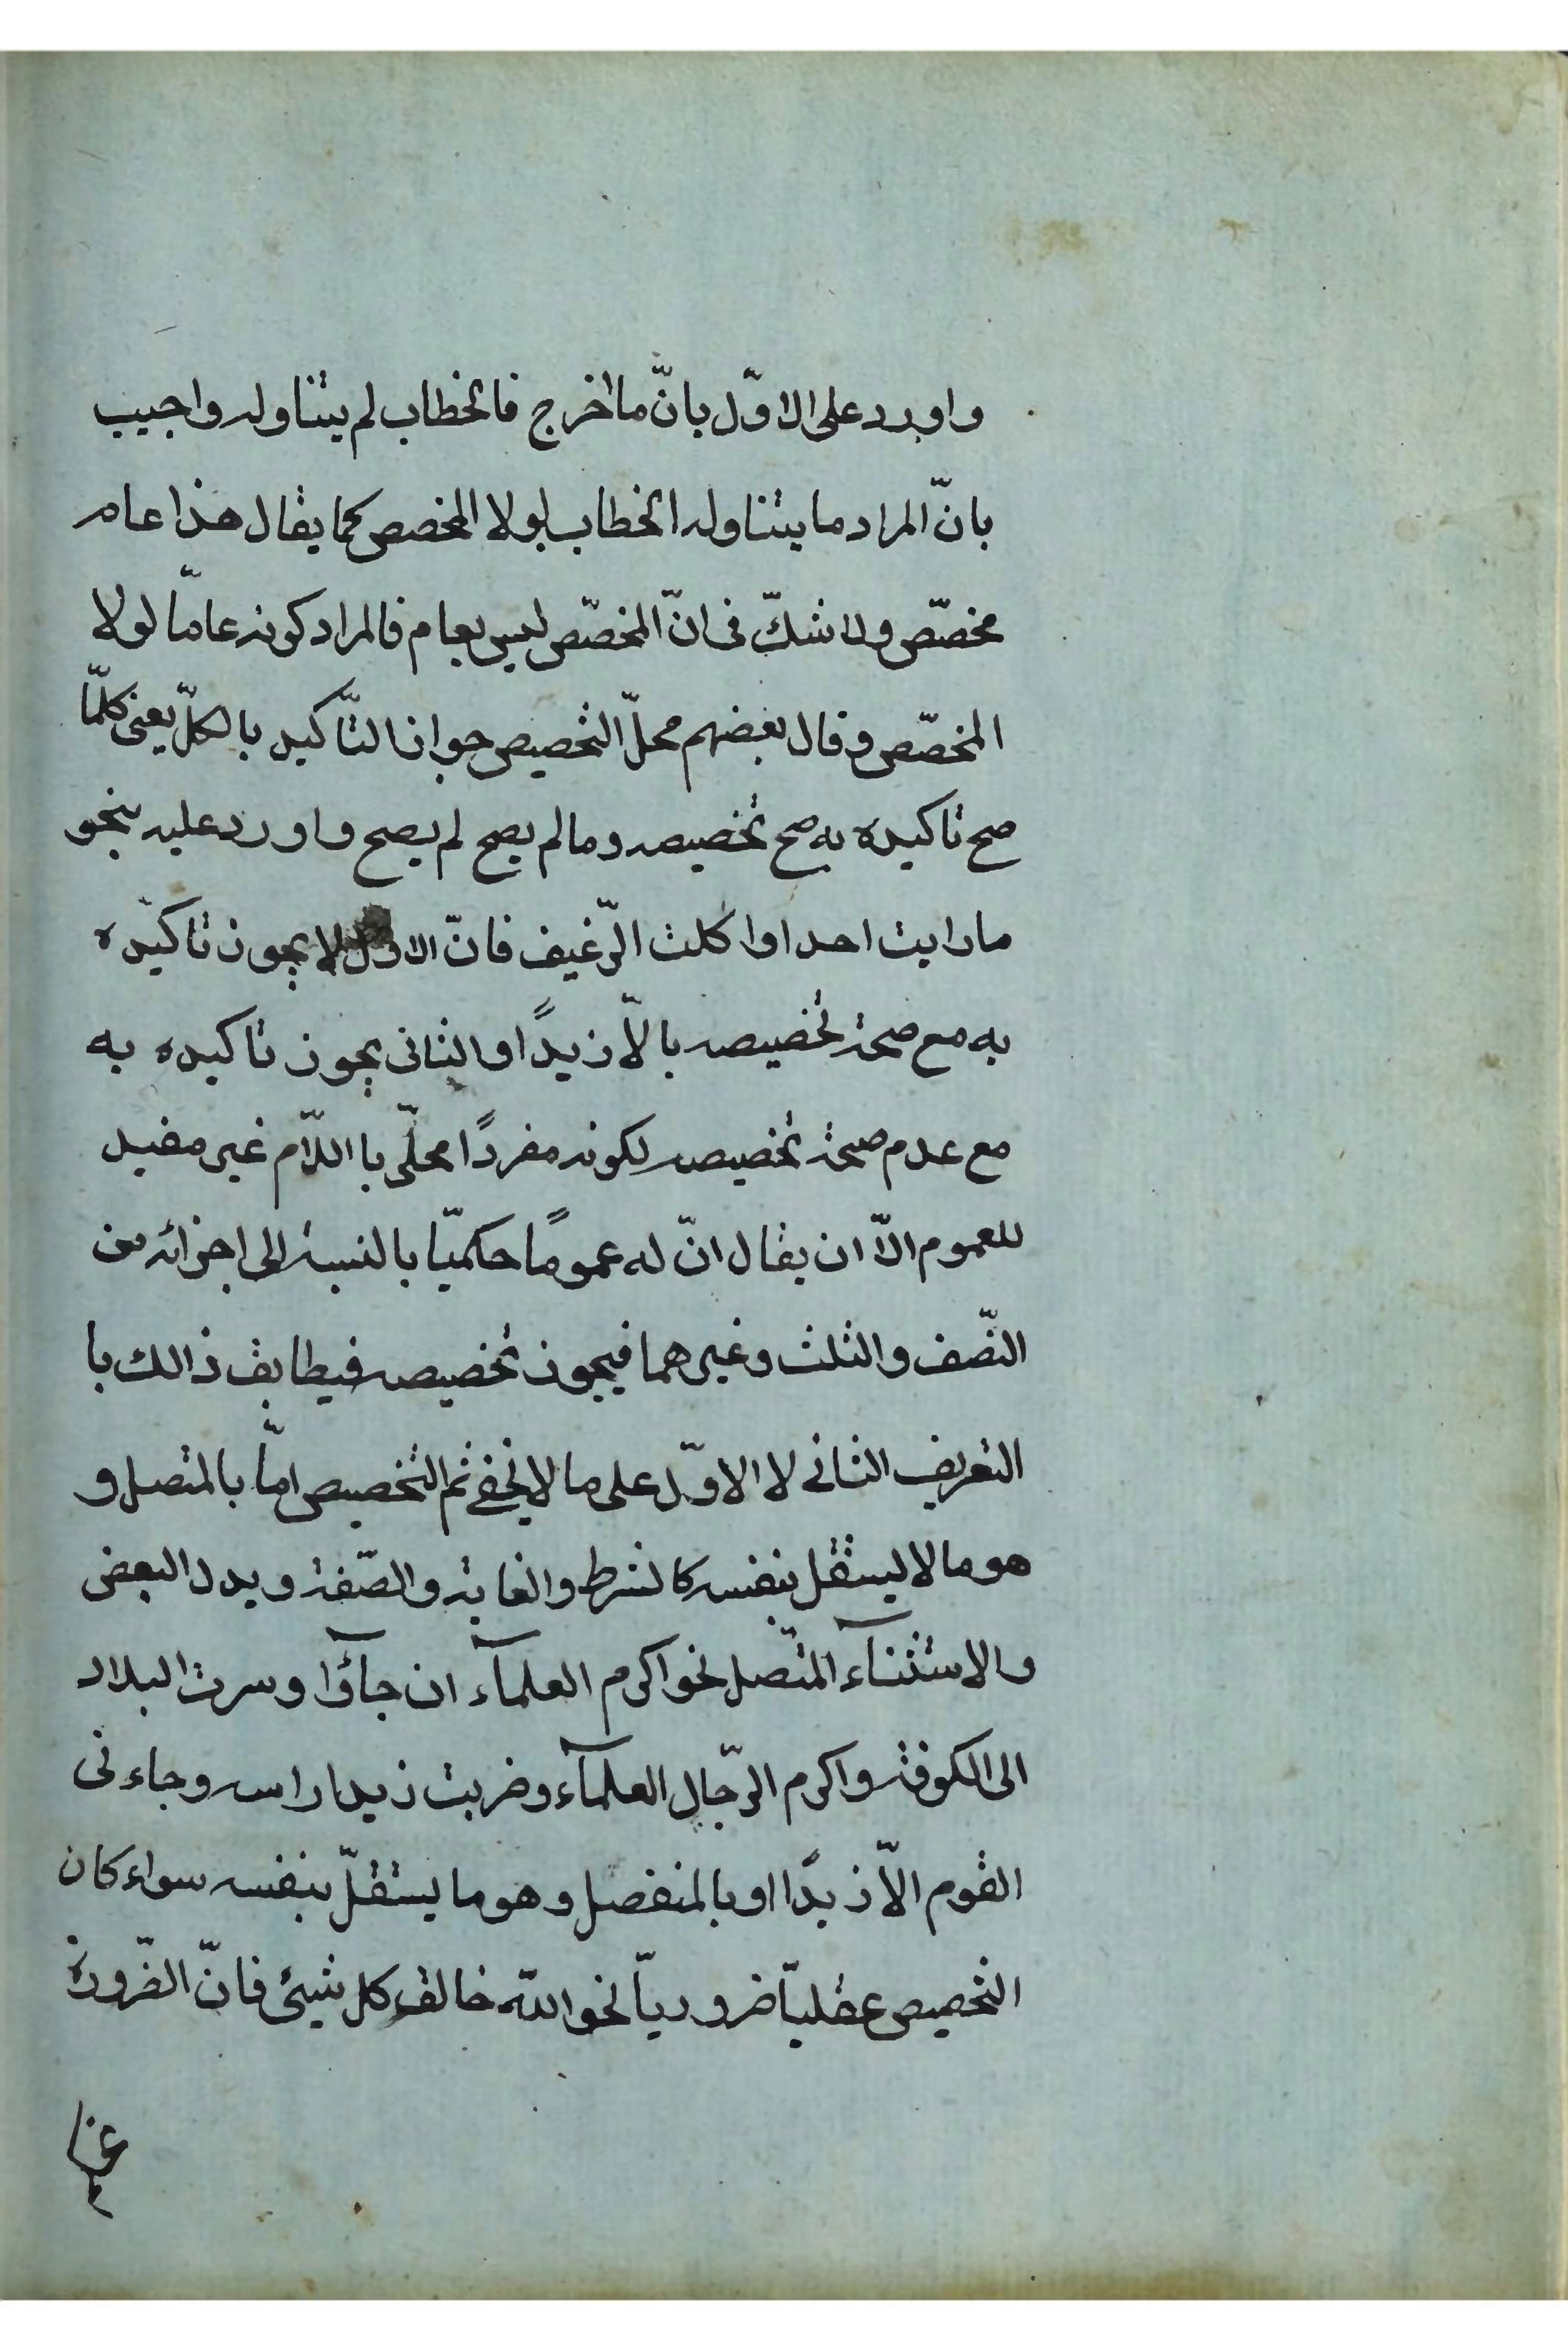 واورد على الاوّل بانّ ما اخرج فالخطاب لم يتناوله واجيب
بانّ المراد ما يتناوله الخطاب لولا المخصص كما يقال هذا عام
مخصّص ولا شكّ فى انّ المخصّص ليس بعام فالمراد كونه عامّا لولا
المخصّص وقال بعضهم محلّ التخصيص جواز التّاكيد بالكلّ يعنى كلّما
صح تاكيده به صح تخصيصه وما لم يصح لم يصح واورد عليه بنحو
ما رايت احدا واكلت الرّغيف فانّ الاوّل لا يجوز تاكيده
به مع صحة تخصيصه بالّا زيدًا والثانى يجوز تاكيده به
مع عدم صحة تخصيصه لكونه مفردًا محلّى با اللّام غير مفيد
للعموم الّا ان يقال انّ له عمومًا حكميّا بالنسبة الى اجزائه من
النّصف والثلث وغيرهما فيجوز تخصيصه فيطابق ذالك با
التعريف الثانى لا الاوّل على ما لا يخفى ثم التخصيص امّا بالمتصل و
هو ما لا ليستقل بنفسه كالشرط والغاية والصّفة وبدل البعض
والاستثنآء المتّصل نحو اكرم العلمآء ان جآؤا وسرت البلاد
الى الكوفة واكرم الرّجال العلمآء وضربت زيدا راسه وجاءنى
القوم الّا زيدًا او بالمنفصل وهو ما ليستقلّ بنفسه سواء كان
التخصيص عقليّا ضروريّا نحو الله خالق كل شيئ فانّ الضّرورة